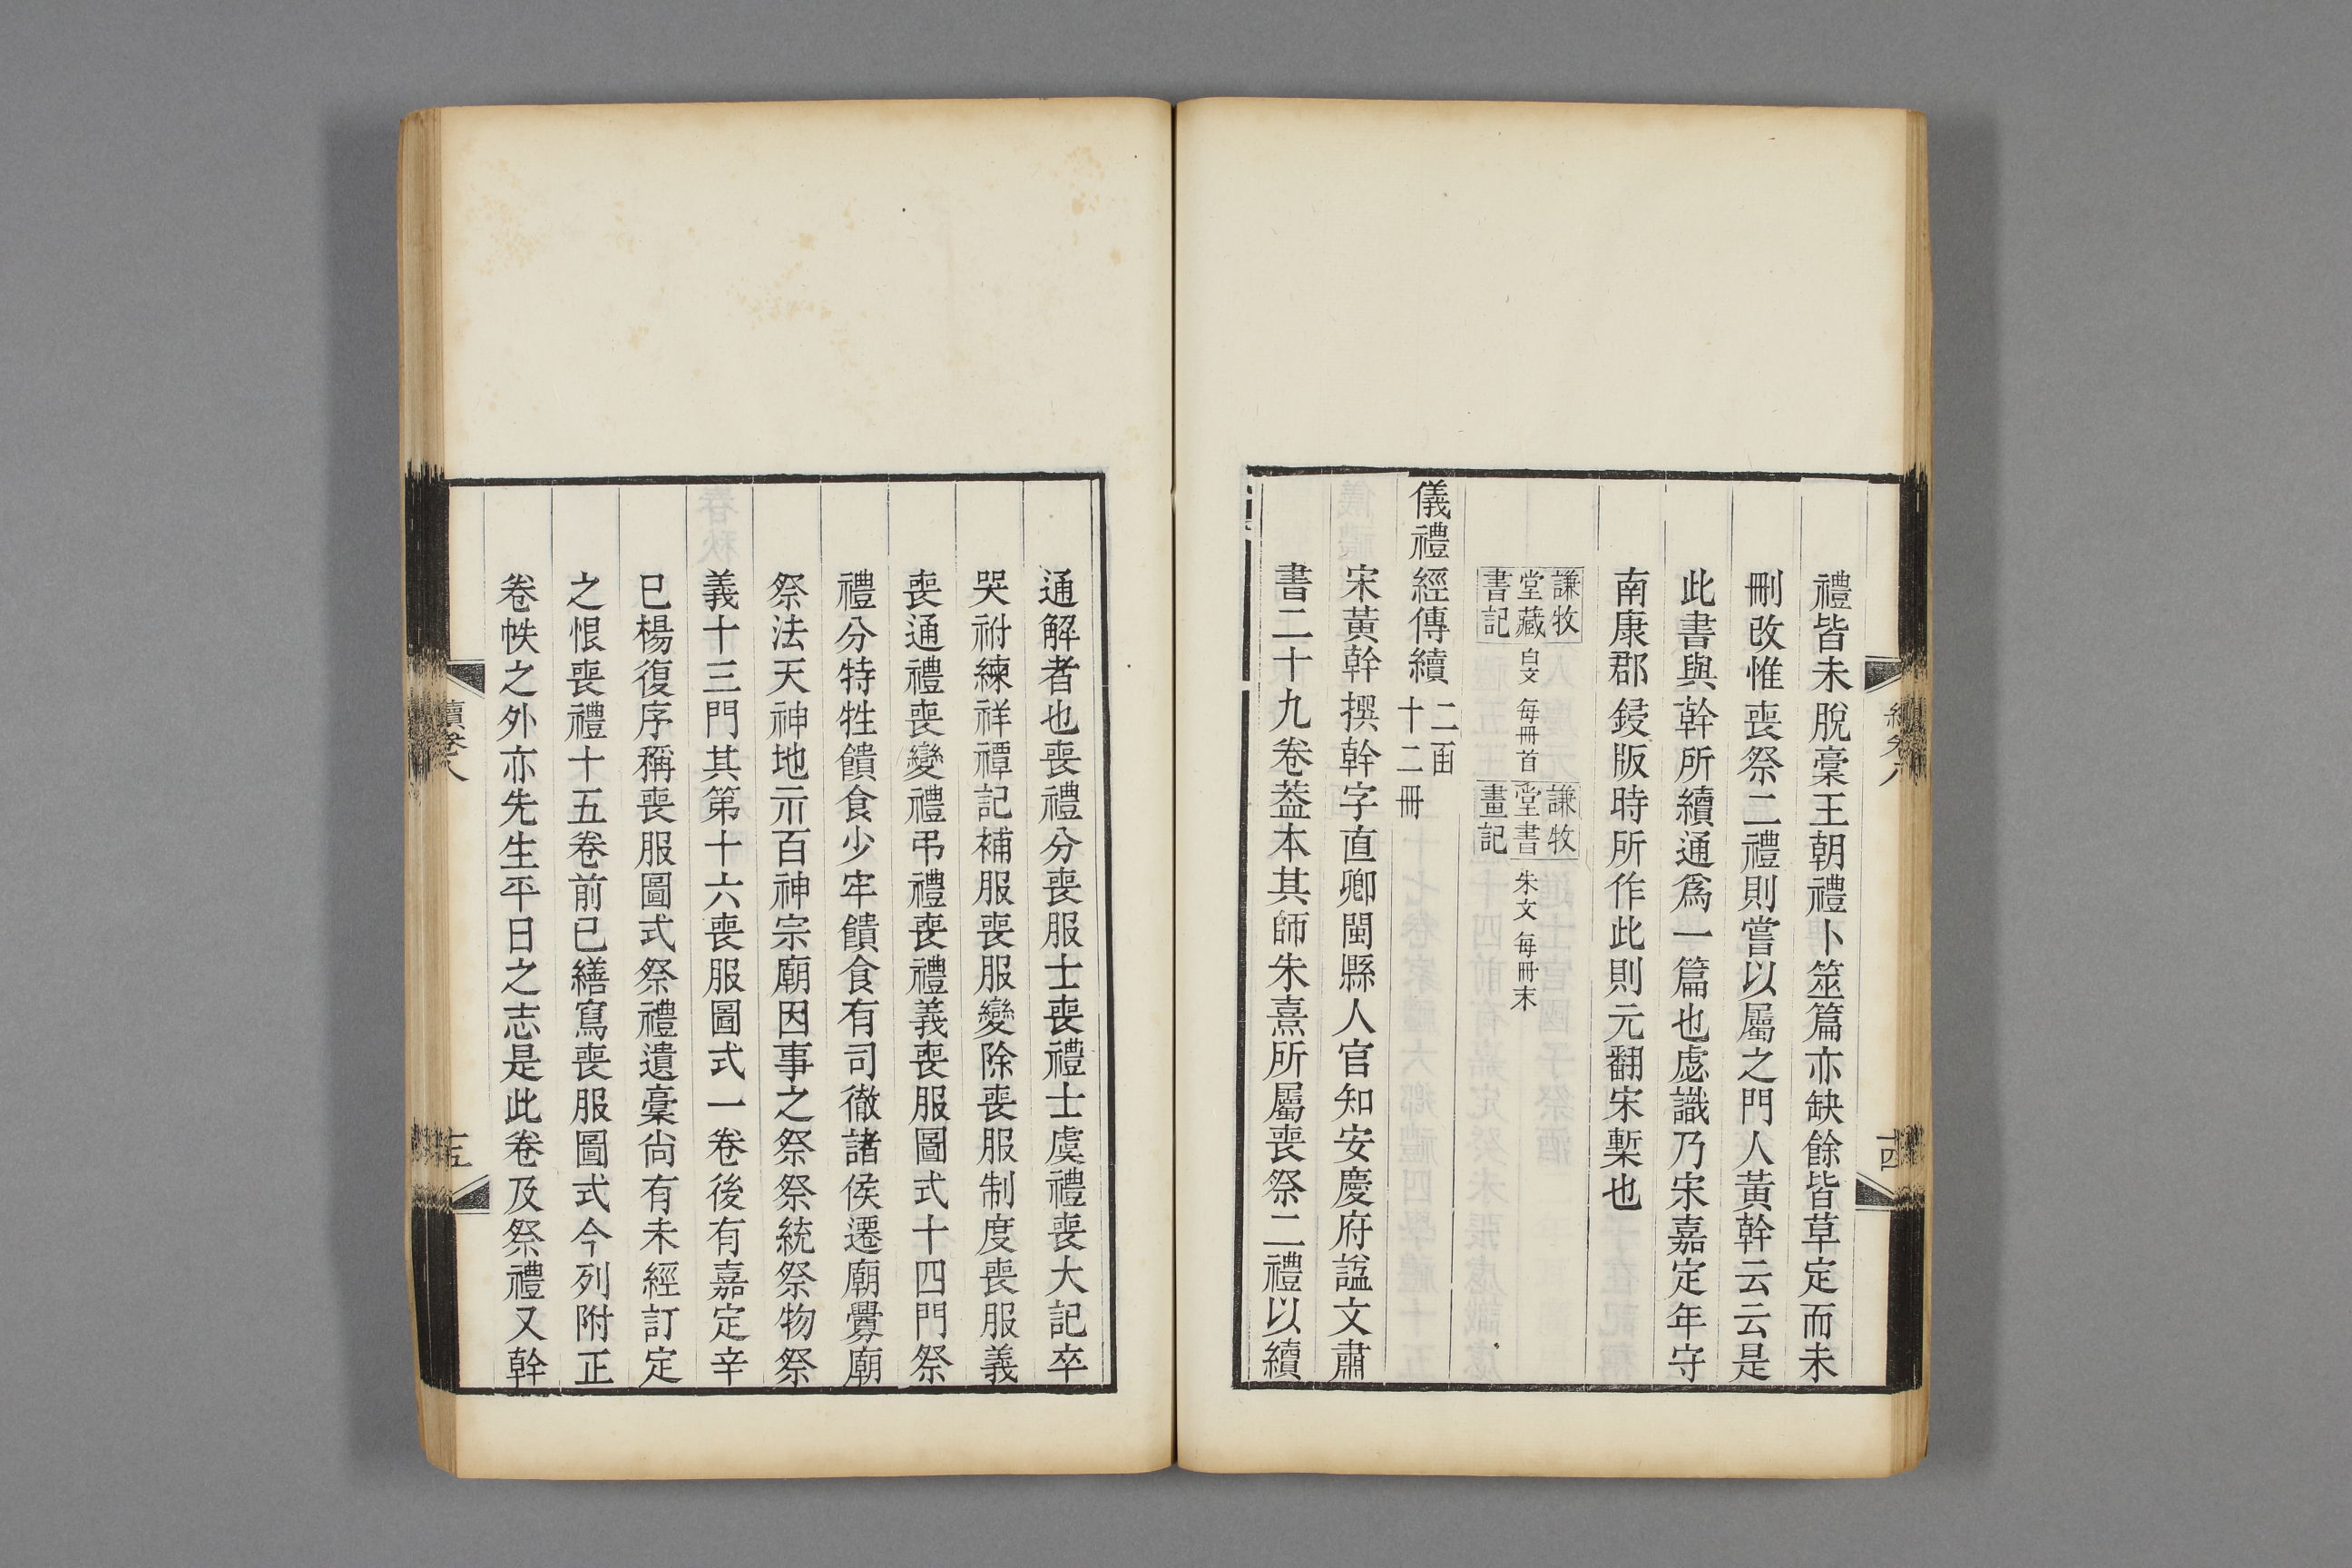 禮皆未脫稾王朝禮卜筮篇亦缺餘皆草定而未
刪改惟喪祭二禮則嘗以屬之門人黃幹云云是
此書與幹所續通爲一篇也虙識乃宋嘉定年守
南康郡鋟版時所作此則元翻宋槧也
謙牧
堂藏
書記
白文
每冊首
謙牧
堂書
畫記
朱文
每冊末
儀禮經傳續
二函
十二冊
宋黃幹撰幹字直卿閩縣人官知安慶府諡文肅
書二十九卷葢本其師朱熹所屬喪祭二禮以續
通解者也喪禮分喪服士喪禮士虞禮喪大記卒
哭祔練祥禫記補服喪服變除喪服制度喪服義
喪通禮喪變禮弔禮喪禮義喪服圖式十四門祭
禮分特牲饋食少牢饋食有司徹諸侯遷廟釁廟
祭法天神地示百神宗廟因事之祭祭統祭物祭
義十三門其第十六喪服圖式一卷後有嘉定辛
巳楊復序稱喪服圖式祭禮遺稾尙有未經訂定
之恨喪禮十五卷前已繕寫喪服圖式今列附正
卷帙之外亦先生平日之志是此卷及祭禮又幹
續卷八
十五